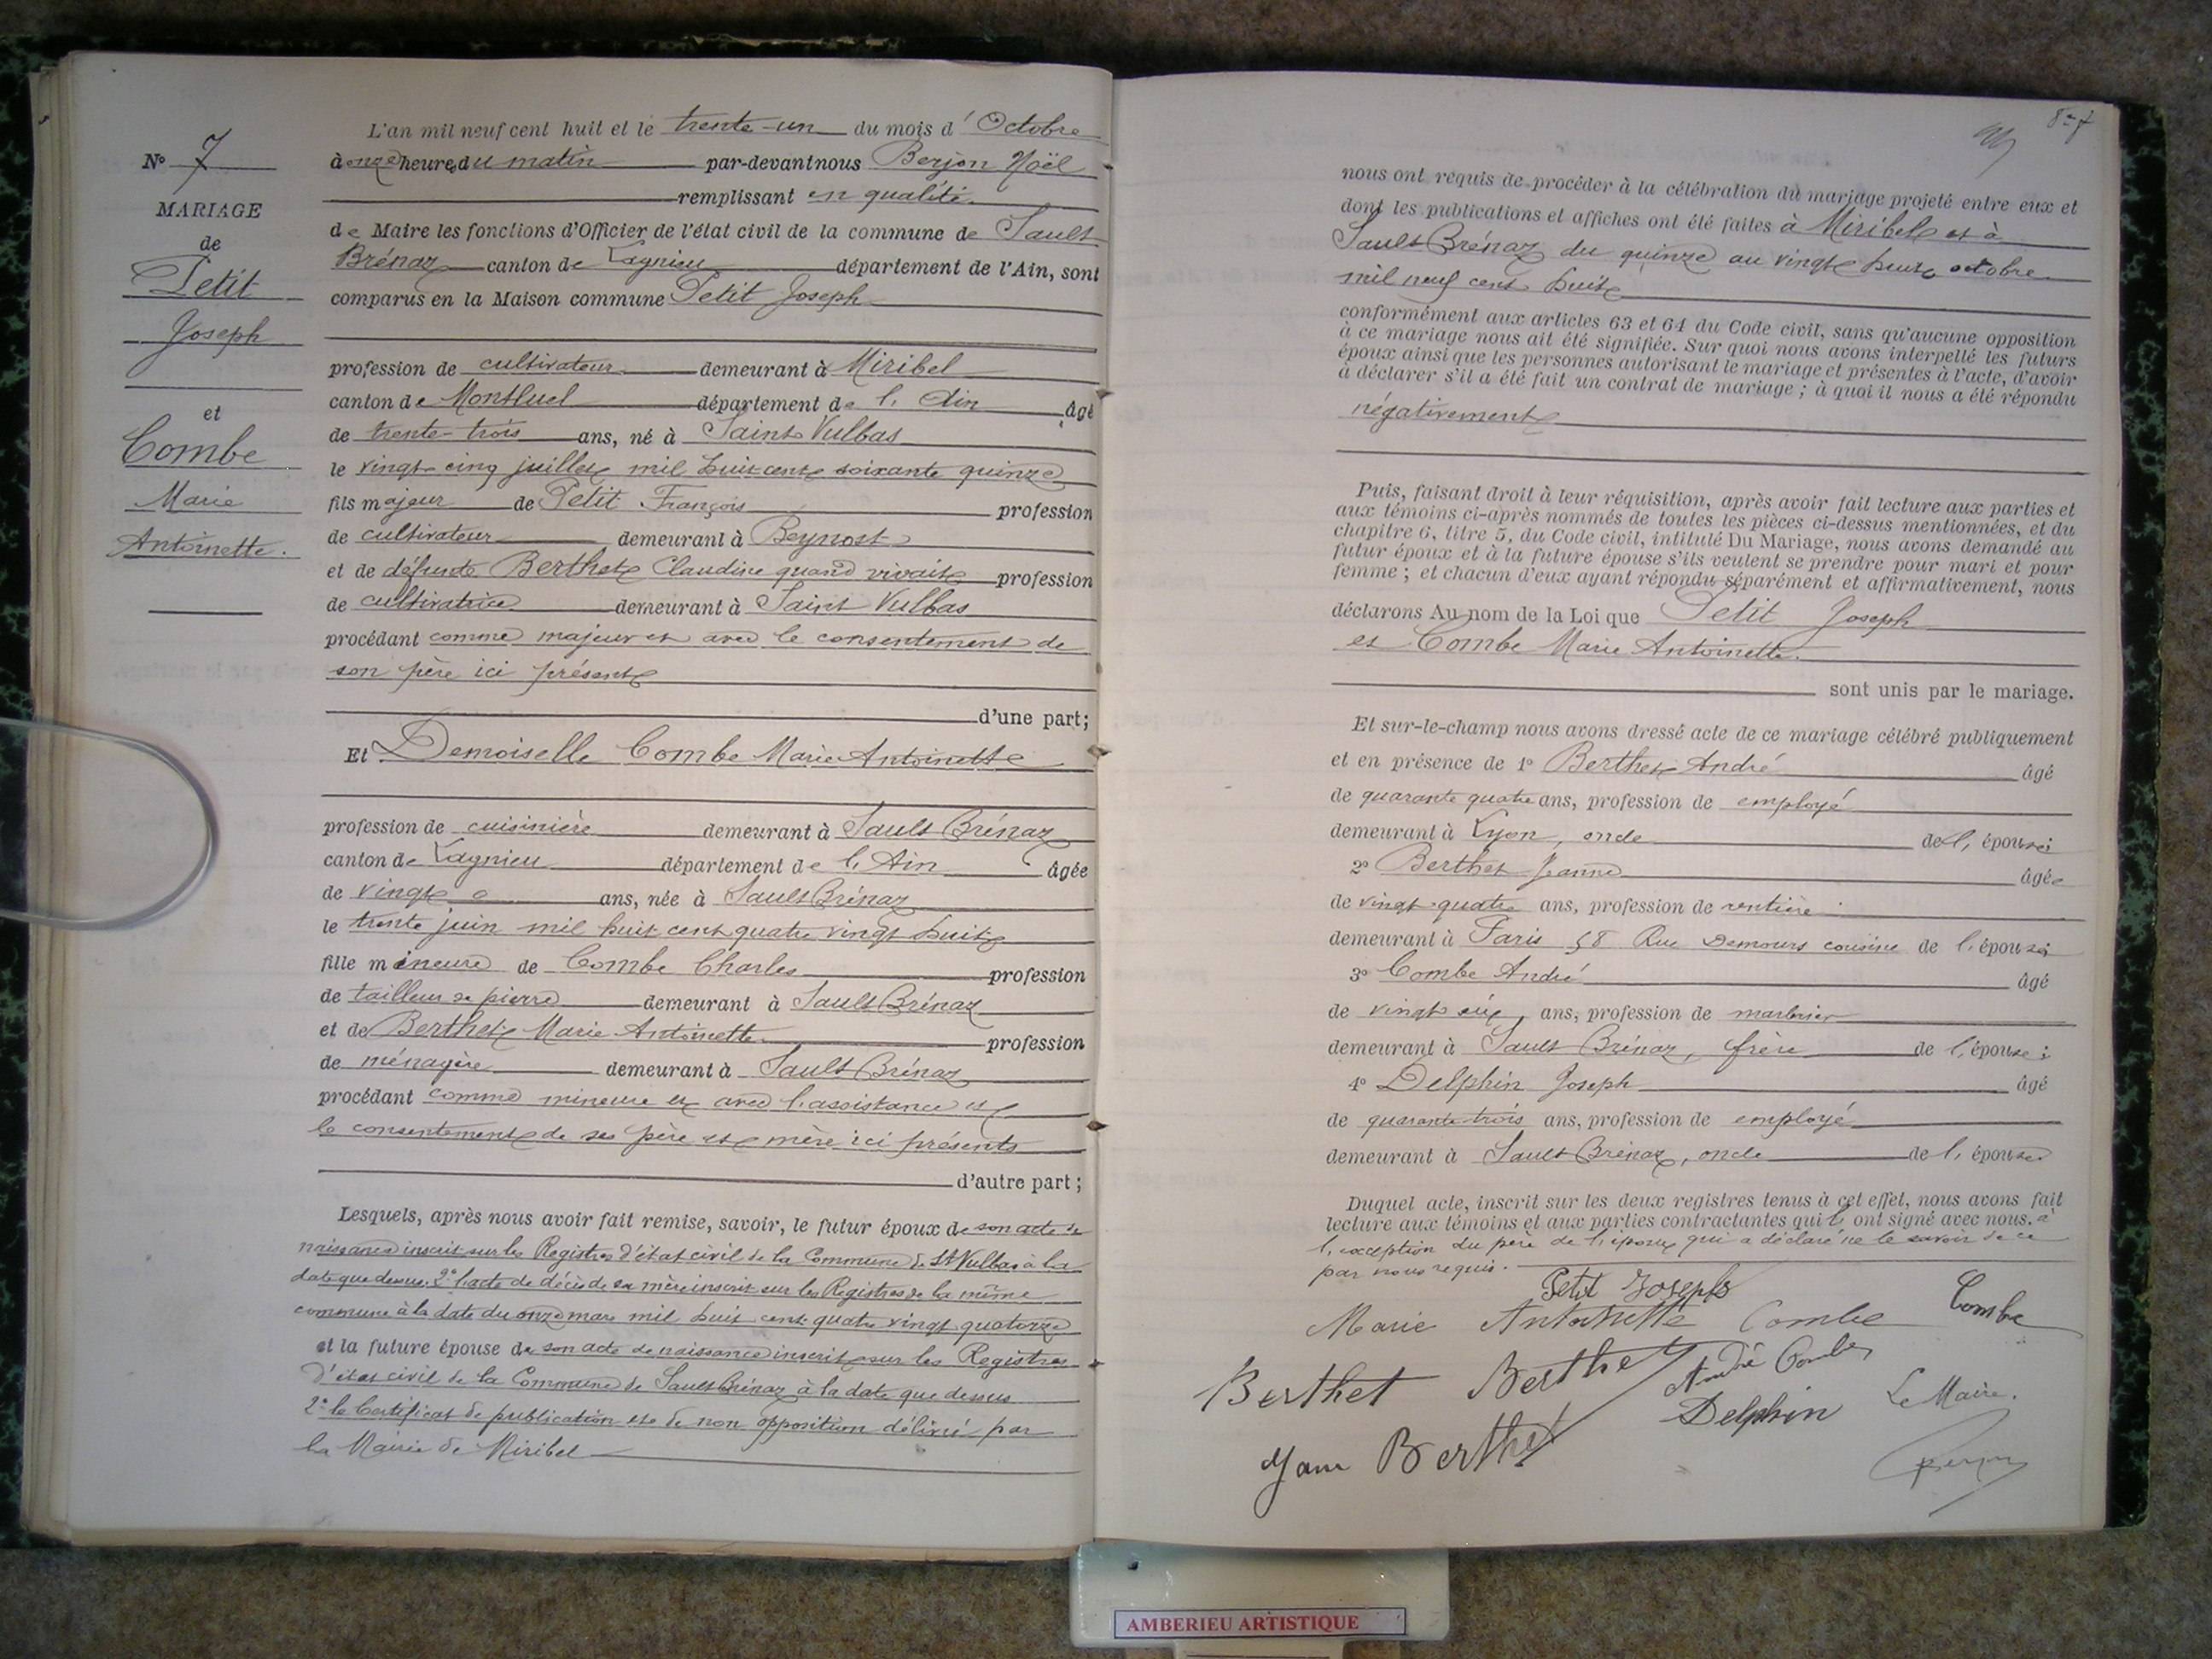 N° 7
MARIAGE
de
Petit
Joseph
et
Combe
Marie
Antoinette.
L'an mil neuf cent huit et le trente-un du mois d'Octobre
à onze heures du matin par-devant nous Berjon Noël
remplissant en qualité
de Maire les fonctions d'Officier de l'état civil de la commune de Sault
Brénaz canton de Lagnieu département de l'Ain, sont
comparus en la Maison commune Petit Joseph
profession de cultivateur demeurant à Miribel
canton de Montluel département de l'Ain âgé
de trente-trois ans, né à Saint Vulbas
le vingt cinq juillet mil huit cent soixante quinze
fils majeur de Petit François profession
de cultivateur demeurant à Beynost
et de défunte Berthet Claudine quand vivait profession
de cultivatrice demeurant à Saint Vulbas
procédant comme majeur et avec le consentement de
son père ici présent
d'une part;
Et Demoiselle Combe Marie Antoinette
profession de cuisinière demeurant à Sault Brénaz
canton de Lagnieu département de l'Ain âgée
de vingt ans, née à Sault Brénaz
le trente juin mil huit cent quatre vingt huit
fille mineure de Combe Charles profession
de tailleur de pierre demeurant à Sault Brénaz
et de Berthet Marie Antoinette profession
de ménagère demeurant à Sault Brénaz
procédant comme mineure et avec l'assistance et
le consentement de ses père et mère ici présents
d'autre part;
Lesquels, après nous avoir fait remise, savoir, le futur époux de son acte de
naissance inscrit sur les Registres d'état civil de la Commune de St Vulbas à la
date que dessus. 2° l'acte de décès de sa mère inscrit sur les Registres de la même
commune à la date du onze mars mil huit cent quatre vingt quatorze
et la future épouse de son acte de naissance inscrit sur les Registres
d'état civil de la Commune de Sault Brénaz à la date que dessus
2° le Certificat de publication et de non opposition délivré par
la Mairie de Miribel
nous ont requis de procéder à la célébration du mariage projeté entre eux et
dont les publications et affiches ont été faites à Miribel et à
Sault Brénaz du quinze au vingt octobre
mil neuf cent huit
conformément aux articles 63 et 64 du Code civil, sans qu'aucune opposition
à ce mariage nous ait été signifiée. Sur quoi nous avons interpellé les futurs
époux ainsi que les personnes autorisant le mariage et présentes à l'acte, d'avoir
à déclarer s'il a été fait un contrat de mariage; à quoi il nous a été répondu
négativement
Puis, faisant droit à leur réquisition, après avoir fait lecture aux parties et
aux témoins ci-après nommés de toutes les pièces ci-dessus mentionnées, et du
chapitre 6, titre 5, du Code civil, intitulé Du Mariage, nous avons demandé au
futur époux et à la future épouse s'ils veulent se prendre pour mari et pour
femme; et chacun d'eux ayant répondu séparément et affirmativement, nous
déclarons Au nom de la Loi que Petit Joseph
et Combe Marie Antoinette.
sont unis par le mariage.
Et sur-le-champ nous avons dressé acte de ce mariage célébré publiquement
et en présence de 1° Berthet André âgé
de quarante quatre ans, profession de employé
demeurant à Lyon, oncle de l'épouse;
2° Berthet Jeanne âgée
de vingt-quatre ans, profession de rentière
demeurant à Paris 58 Rue Demours cousine de l'épouse;
3° Combe André âgé
de vingt six ans, profession de marbrier
demeurant à Sault Brénaz, frère de l'épouse;
4° Delphin Joseph âgé
de quarante-trois ans, profession de employé
demeurant à Sault Brénaz, oncle de l'épouse
Duquel acte, inscrit sur les deux registres tenus à cet effet, nous avons fait
lecture aux témoins et aux parties contractantes qui l'ont signé avec nous. à
l'exception du père de l'époux qui a déclaré ne le savoir de ce
par nous requis.
Petit Joseph
Marie Antoinette Combe Combe
Berthet Berthet André Combe
Delphin Le Maire.
Berthet Berjon
AMBERIEU ARTISTIQUE